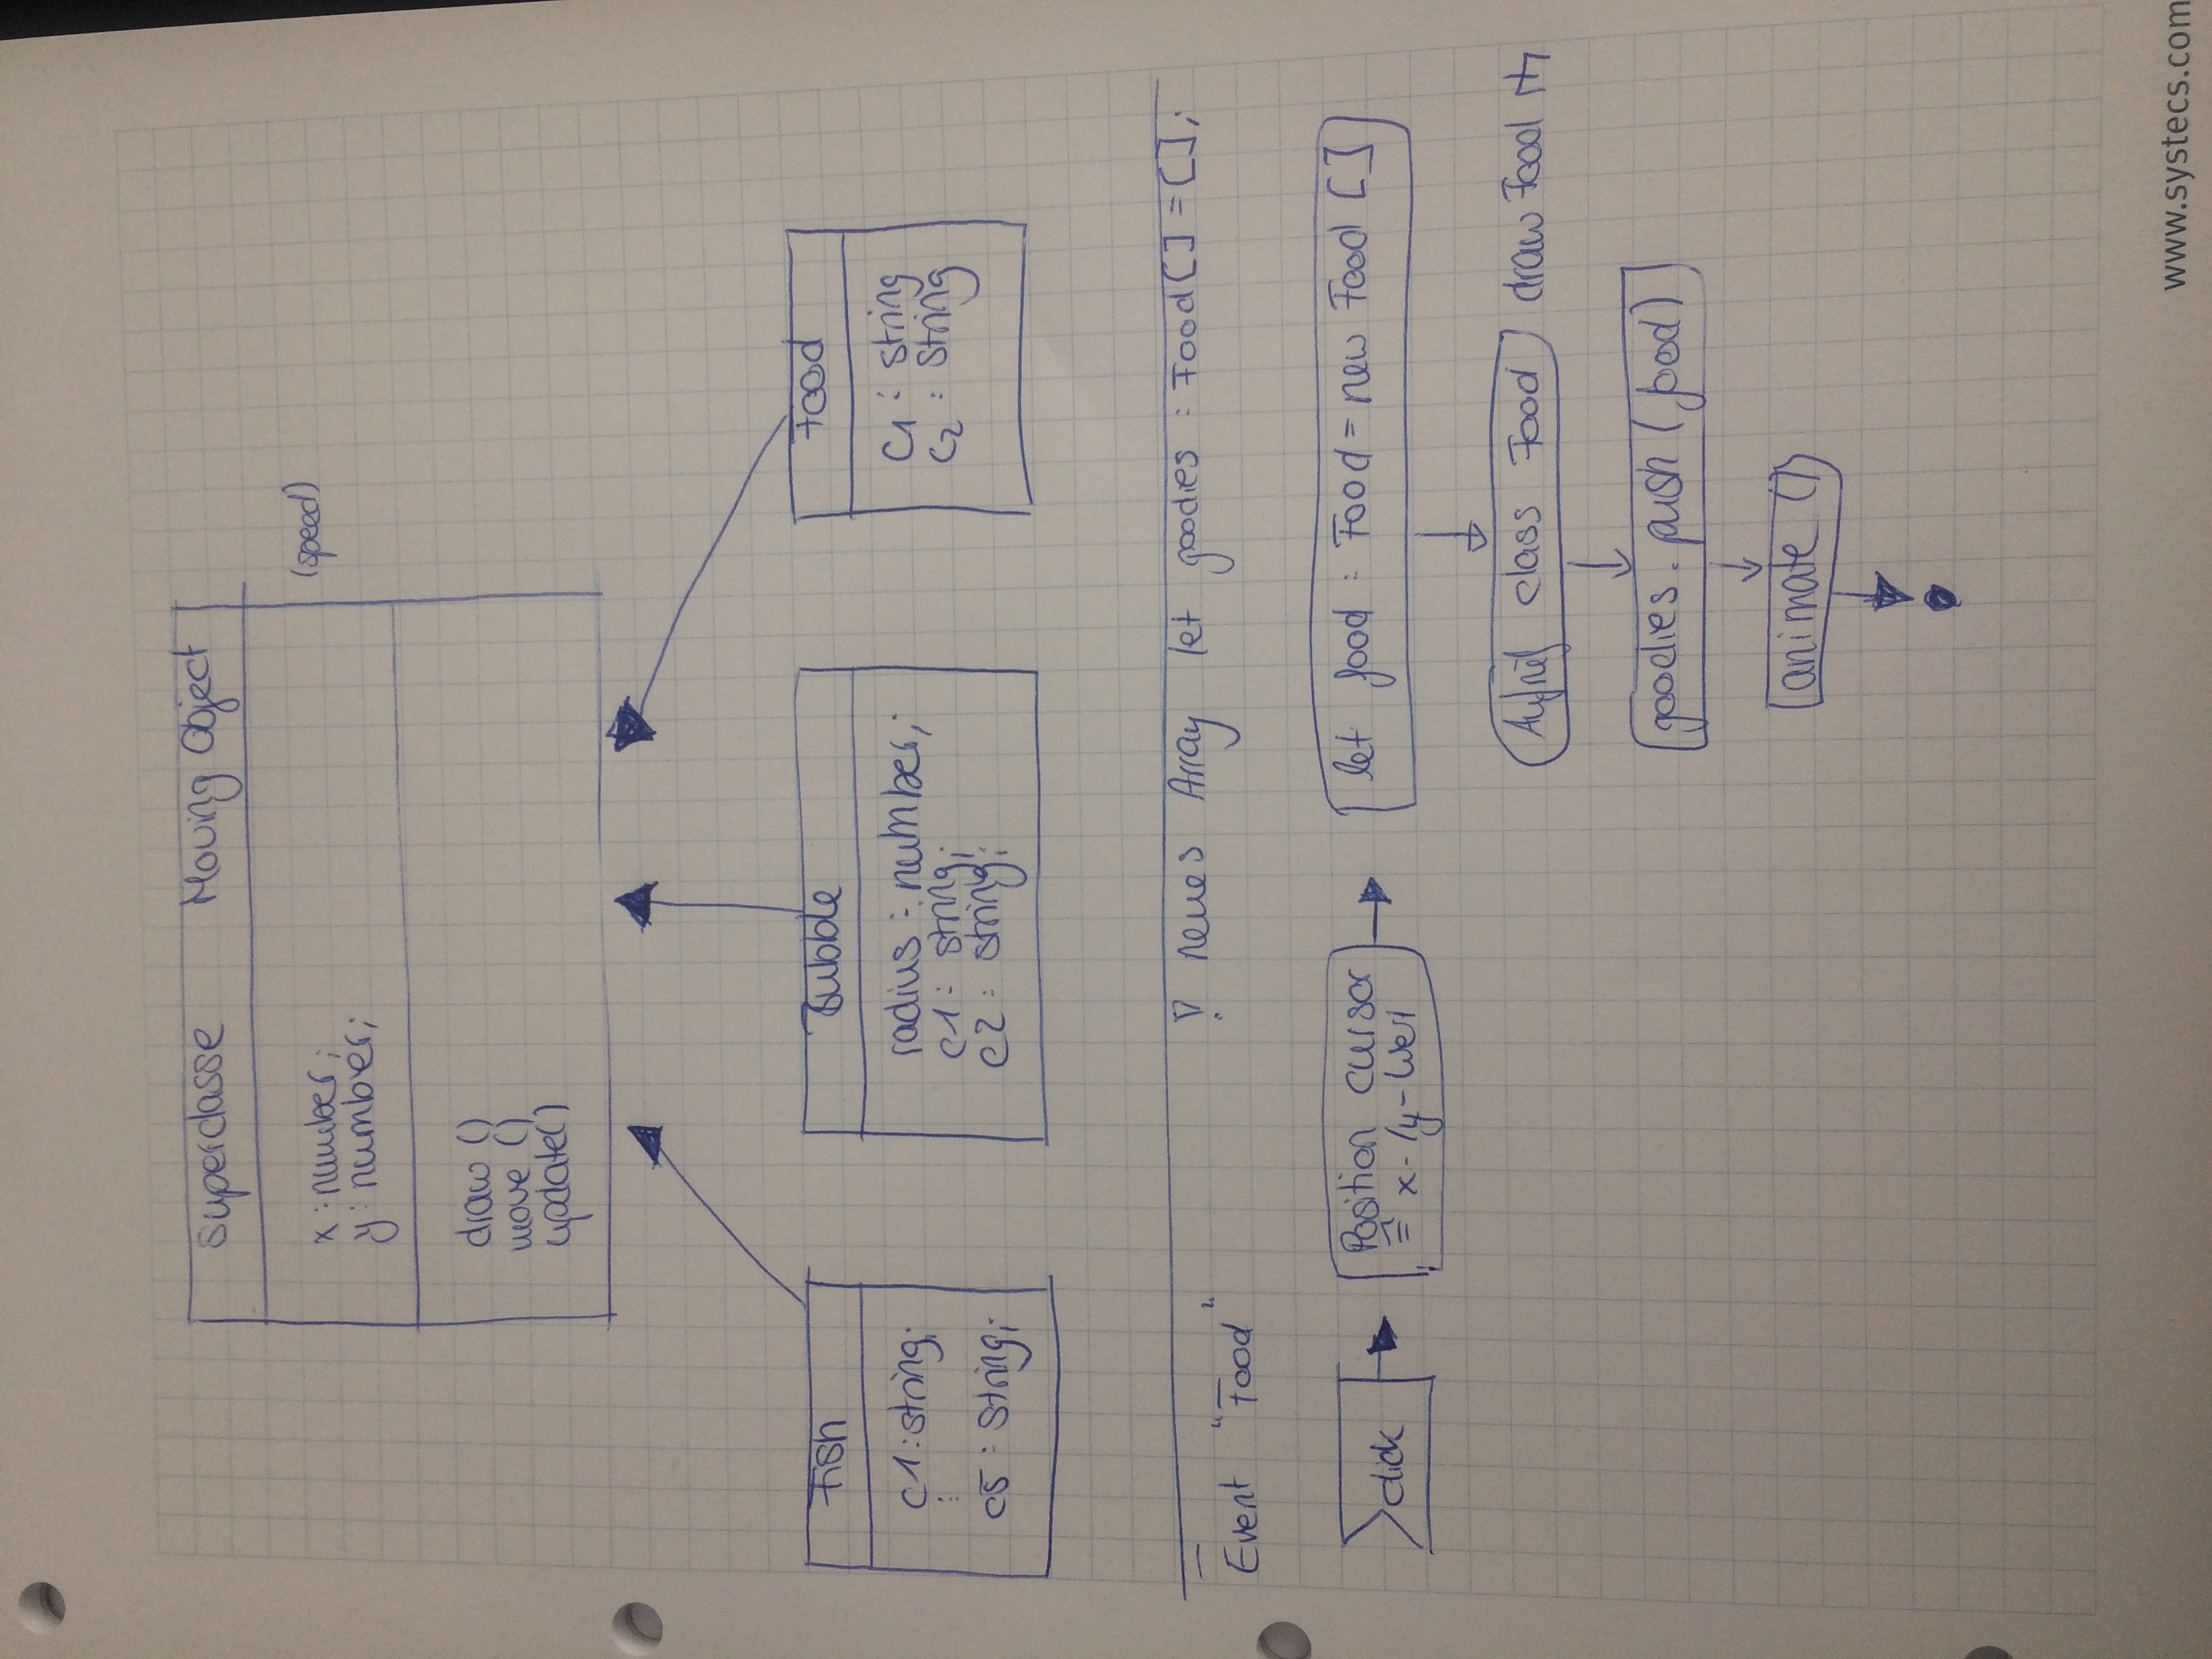 Superclasse Moving Object
x : number;
y : number;
(speed)
draw ()
move ()
update()
Fish
c1 : string;
⋮
c5 : string;
Bubble
radius : number;
c1 : string;
c2 : string;
Food
c1 : string
c2 : string
! neues Array let goodies : Food[] = [];
Event "Food"
click
Position cursor
≙ x-/y-Wert
let food : Food = new Food []
Aufruf class Food draw Food
goodies.push (food)
animate ()
www.systecs.com